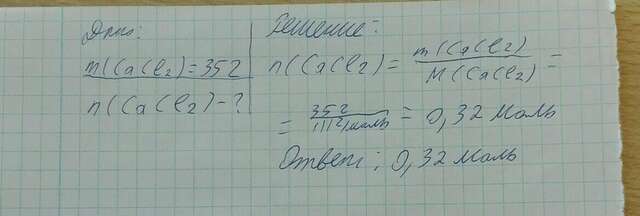 Дано:
m(CaCl₂)=35г
n(CaCl₂)-?
Решение:
n(CaCl₂) = m(CaCl₂) / M(CaCl₂) =
= 35г / 111г/моль = 0,32 моль
Ответ: 0,32 моль